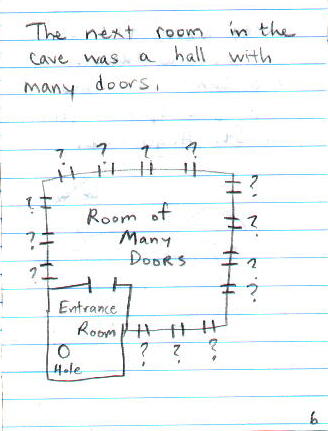 The next room in the
cave was a hall with
many doors.
? ? ? ?
? ?
Room of
? ?
Many
? Doors ?
?
Entrance
Room
? ? ?
O
Hole
6